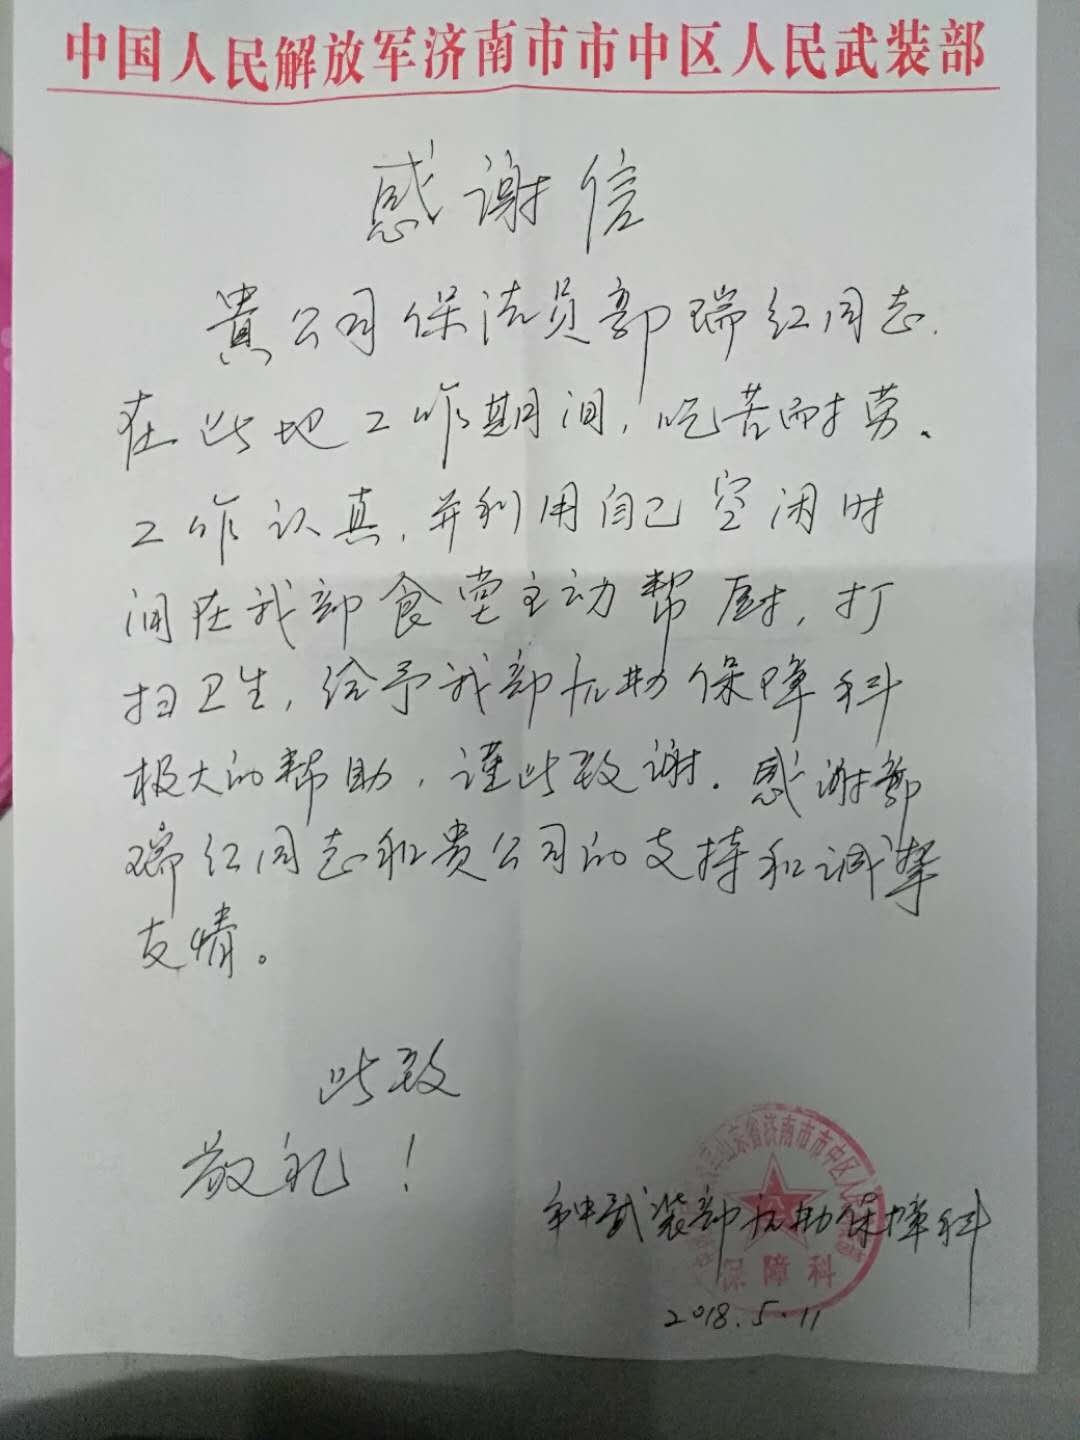 中国人民解放军济南市市中区人民武装部
感谢信
貴公司保洁员郭瑞红同志.
在此地工作期间,吃苦耐劳、
工作认真,并利用自己空闲时
间在我部食堂主动帮厨,打
扫卫生,给予我部后勤保障科
极大的帮助,谨此致谢.感谢郭
瑞红同志和贵公司的支持和诚挚
友情。
此致
敬礼!
市中武装部后勤保障科
山东省济南市市中区人民
保障科
2018.5.11